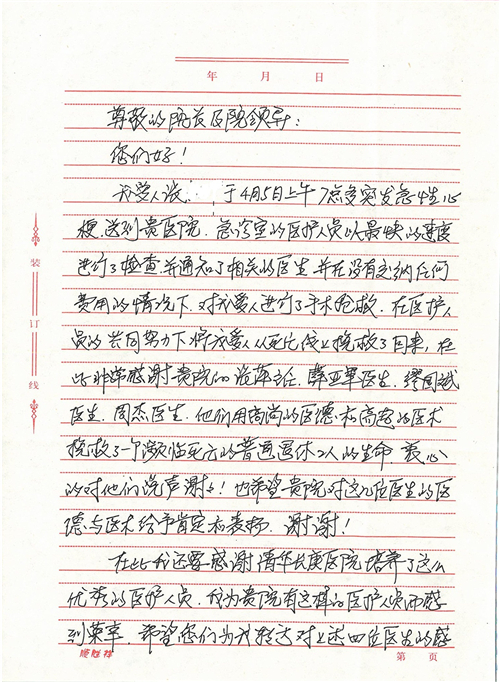 年 月 日
尊敬的院长及院领导：
您们好！
我爱人张 于4月5日上午7点多突发急性心
梗，送到贵医院。急诊室的医护人员以最快的速度
进行了检查并通知了相关的医生，并在没有交纳任何
费用的情况下，对我爱人进行了手术抢救，在医护人
员的共同努力下将我爱人从死亡线上挽救了回来，在
此非常感谢贵院的张萍主任、薛亚军医生、缪国斌
医生、周杰医生，他们用高尚的医德和高超的医术
挽救了一个濒临死亡的普通退休工人的生命，衷心
的对他们说声谢谢！也希望贵院对这几位医生的医
德与医术给予肯定和表扬，谢谢！
在此我还要感谢清华长庚医院培养了这么
优秀的医护人员，我为贵院有这样的医护人员而感
到荣幸，希望您们为我转达对上述四位医生的感
装订线
第 页